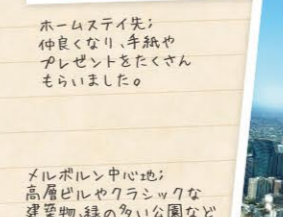 ホームステイ先;
仲良くなり、手紙や
プレゼントをたくさん
もらいました。
メルボルン中心地;
高層ビルやクラシックな
建築物、緑の多い公園など